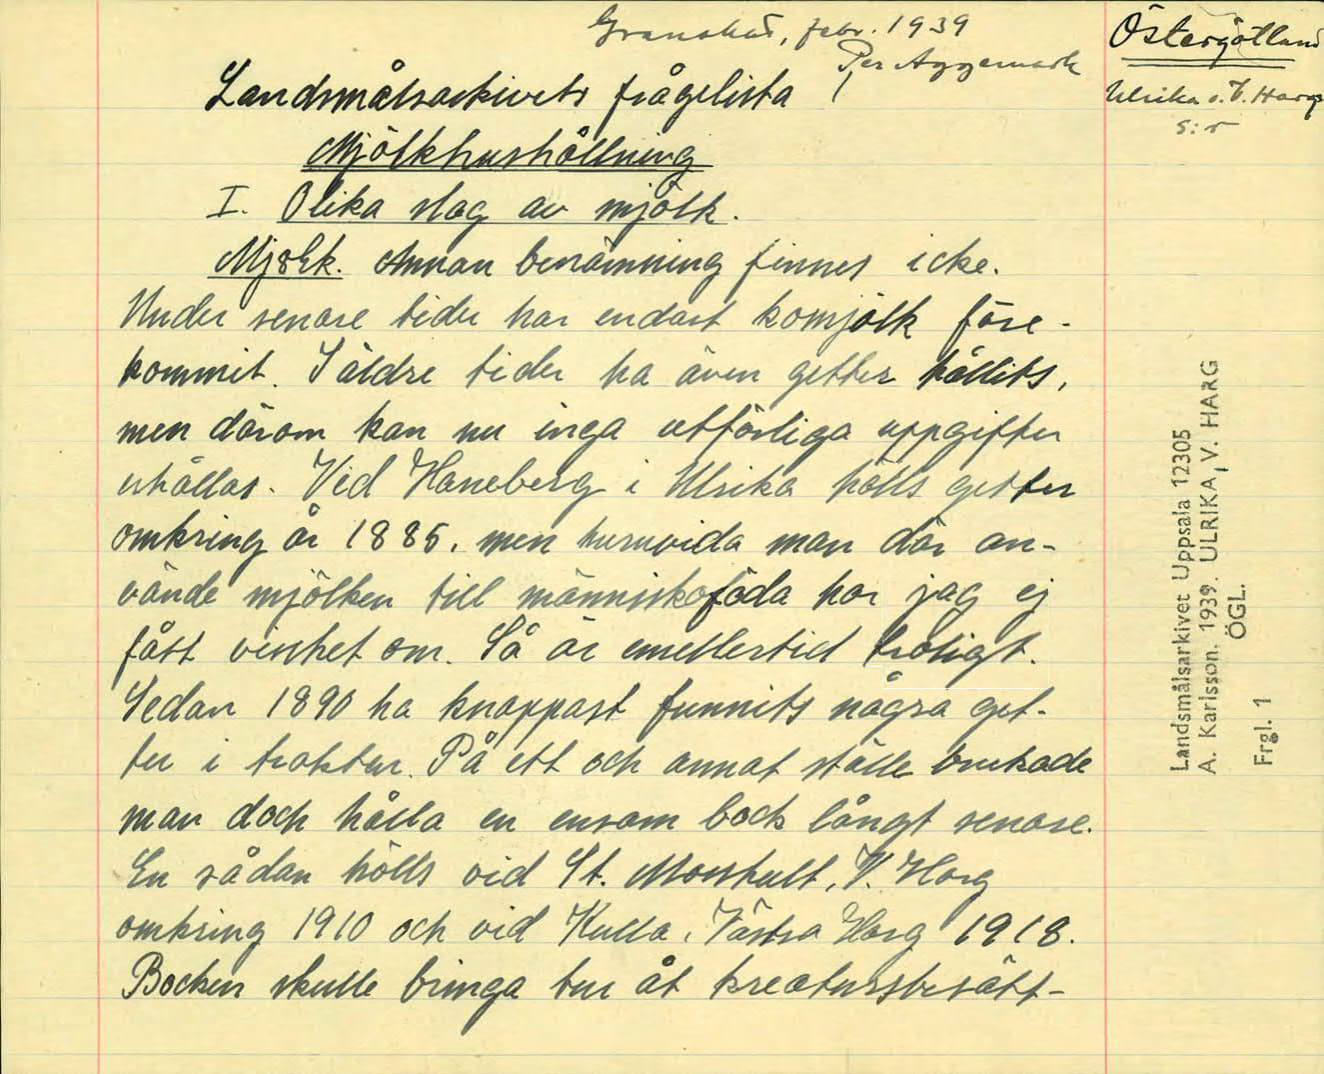 Granskad, febr. 1939
Per Aggemark
Östergötland
Ulrika o. V. Harg
s:r
Landsmålsarkivets frågelista 1
Mjölkhushållning
I. Olika slag av mjölk.
Mjölk. Annan benämning finnes icke.
Under senare tider har endast komjölk före-
kommit. I äldre tider ha även getter hållits,
men därom kan nu inga utförliga uppgifter
erhållas. Vid Haneberg i Ulrika hölls getter
omkring år 1885, men huruvida man där an-
vände mjölken till människoföda har jag ej
fått visshet om. Så är emellertid troligt.
Sedan 1890 ha knappast funnits några get-
ter i trakten. På ett och annat ställe brukade
man doch hålla en ensam bock långt senare.
En sådan hölls vid St. Morshult, V. Harg
omkring 1910 och vid Kulla, Västra Harg 1918.
Bocken skulle bringa tur åt kreatursbesätt-
Landsmålsarkivet Uppsala 12305
A. Karlsson. 1939. ULRIKA, V. HARG
ÖGL.
Frgl. 1